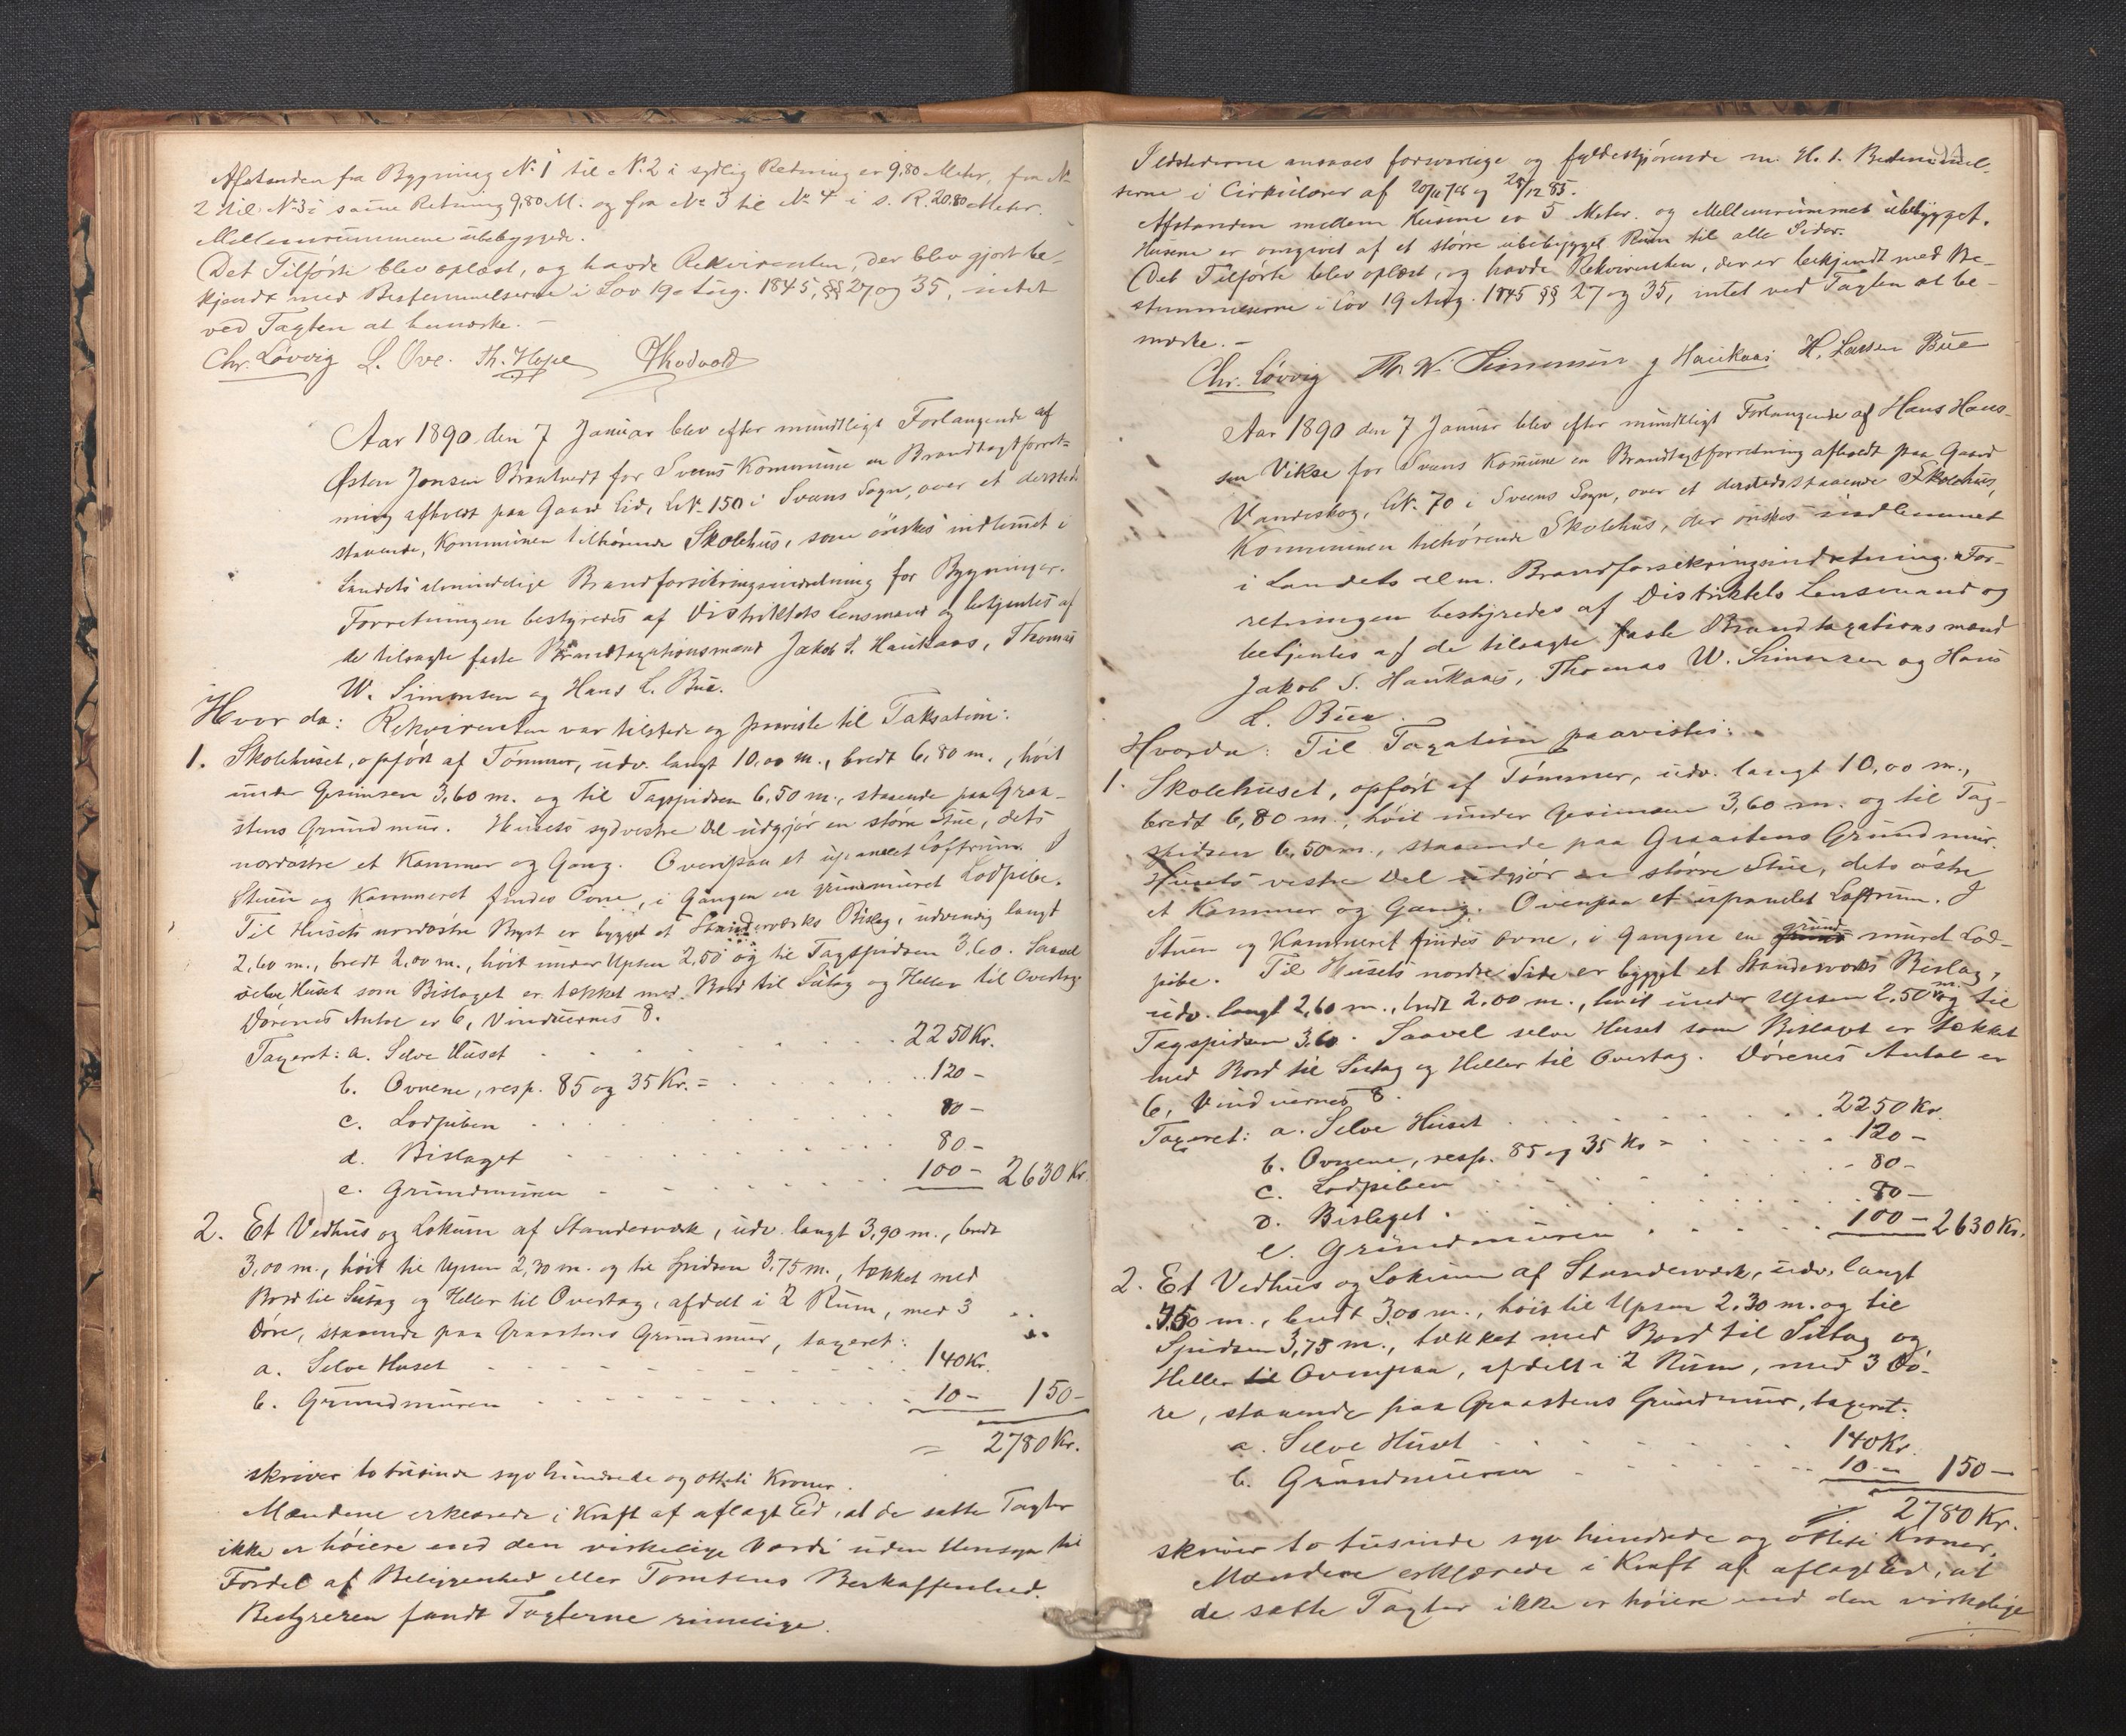 Afstanden fra Bygning N. 1 til N. 2 i sydlig Retning er 9,80 Meter, fra N.
2 til N. 3 i samme Retning 9,80 M. og fra N. 3 til N. 4 i s. R. 20.80 Meter.
Mellemrummene ubebyggede.
Det Tilførte blev oplæst, og havde Rekvirenten, der blev gjort be-
kjendt med Bestemmelserne i Lov 19 Aug. 1845, §§ 27 og 35, intet
ved Taxten at bemærke. -
Chr. Løvvig L. Ove. Th. Hope
Aar 1890 den 7 Januar blev efter mundtligt Forlangende af
Østen Jonsen Brautvedt for Sveens Kommune en Brandtaxtforret-
ning afholdt paa Gaard Lid, LN. 150 i Sveens Sogn, over et dersteds
staaende, Kommunen tilhørende Skolehus, som ønskes indlemmet i
Landets almindelige Brandforsikringsindretning for Bygninger.
Forretningen bestyredes af Distriktets Lensmand og betjentes af
de tilsagte faste Brandtaxationsmænd Jakob S. Haukaas, Thomas
W. Simonsen og Hans L. Bue.
Hvor da: Rekvirenten var tilstede og paaviste til Taksation:
1. Skolehuset, opført af Tømmer, udv. langt 10,00 m., bredt 6,80 m., høit
under Gesimsen 3,60 m. og til Tagspidsen 6,50 m., staaende paa Graa-
stens Grundmur. Husets sydvestre Del udgjør en større Stue, dets
nordøstre et Kammer og Gang. Ovenpaa et upanelet Loftrum. I
Stuen og Kammeret findes Ovne, i Gangen en grundmuret Lodpibe.
Til Husets nordøstre Bryst er bygget et Standerværks Bislag, udvendig langt
2,60 m., bredt 2,00 m., høit under Upsen 2,50 og til Tagspidsen 3,60. Saavel
selve Huset som Bislaget er tækket med Bord til Sutag og Heller til Overtag
Dørenes Antal er 6, Vinduernes 8.
Taxeret: a. Selve Huset 2250 Kr.
b. Ovnene, resp. 85 og 35 Kr. = 120 -
c. Lodpiben 80 -
d. Bislaget 80 -
e. Grundmuren 100 - 2630 Kr.
2. Et Vedhus og Lokum af Standerværk, udv. langt 3,90 m., bredt
3,00 m., høit til Upsen 2,30 m. og til Spidsen 3,75 m., tækket med
Bord til Sutag og Heller til Overtag, afdelt i 2 Rum, med 3
Døre, staaende paa Graastens Grundmur, taxeret:
a. Selve Huset 140 Kr.
b. Grundmuren 10 - 150 -
= 2780 Kr.
skriver to tusinde syv hundrede og otteti Kroner.
Mændene erklærede i Kraft af aflagt Ed, at de satte Taxter
ikke er høiere end den virkelige Værdi uden Hensyn til
Fordel af Beliggenhed eller Tomtens Beskaffenhed.
Bestyreren fandt Taxterne rimelige.
94
Ildstederne ansaaes forsvarlige og fyldestgjørende m. H. t. Bestemmel-
serne i Cirkulærer af og 28/12 85.
Afstanden mellem Husene er 5 Meter. og Mellemrummet ubebygget.
Husene er omgivet af et større ubebygget Rum til alle Sider.
Det Tilførte blev oplæst, og havde Rekvirenten, der er bekjendt med Be-
stemmelserne i Lov 19 Aug. 1845 §§ 27 og 35, intet ved Taxten at be-
mærke. -
Chr. Løvvig Th. W. Simonsen J Haukaas H. Larsen Bue
Aar 1890 den 7 Januar blev efter mundtligt Forlangende af Hans Hans-
sen Vikse for Sveens Komune en Brandtaxtforretning afholdt paa Gaard
Vandeskog, LN. 70 i Sveens Sogn, over et dersteds staaende Skolehus,
Kommunen tilhørende Skolehus, der ønskes indlemmet
i Landets alm. Brandforsikringsindretning. For-
retningen bestyredes af Distriktets Lensmand og
betjentes af de tilsagte faste Brandtaxationsmænd
Jakob S. Haukaas, Thomas W. Simonsen og Hans
L. Bue.
Hvorda: Til Taxation paavistes:
1. Skolehuset, opført af Tømmer, udv. langt 10,00 m.,
bredt 6,80 m., høit under Gesimsen 3,60 m. og til Tag-
spidsen 6,50 m., staaende paa Graastens Grundmur.
Husets vestre Del udgjør en større Stue, dets østre
et Kammer og Gang. Ovenpaa et upanelet Loftrum. I
Stuen og Kammeret findes Ovne, i Gangen en grund muret Lod-
pibe. Til Husets nordre Side er bygget et Standerværks Bislag,
udv. langt 2,60 m., bredt 2,00 m., høit under Upsen 2,50 m. og til
Tagspidsen 3,60. Saavel selve Huset som Bislaget er tækket
med Bord til Sutag og Heller til Overtag. Dørenes Antal er
6, Vinduernes 8.
Taxeret: a. Selve Huset 2250 Kr.
b. Ovnene, resp. 85 og 35 Kr = 120 -
c. Lodpiben 80 -
d. Bislaget 80 -
e. Grundmuren 100 - 2630 Kr.
2. Et Vedhus og Lokum af Standerværk, udv. langt
m., bredt 3,00 m., høit til Upsen 2,30 m. og til
Spidsen 3,75 m., tækket med Bord til Sutag og
Heller til Ovenpaa, afdelt i 2 Rum, med 3 Dø-
re, staaende paa Graastens Grundmur, taxeret:
a. Selve Huset 140 Kr.
b. Grundmuren 10 - 150 -
2780 Kr.
skriver to tusinde syv hundrede og otteti Kroner.
Mændene erklærede i Kraft af aflagt Ed, at
de satte Taxter ikke er høiere end den virkelige